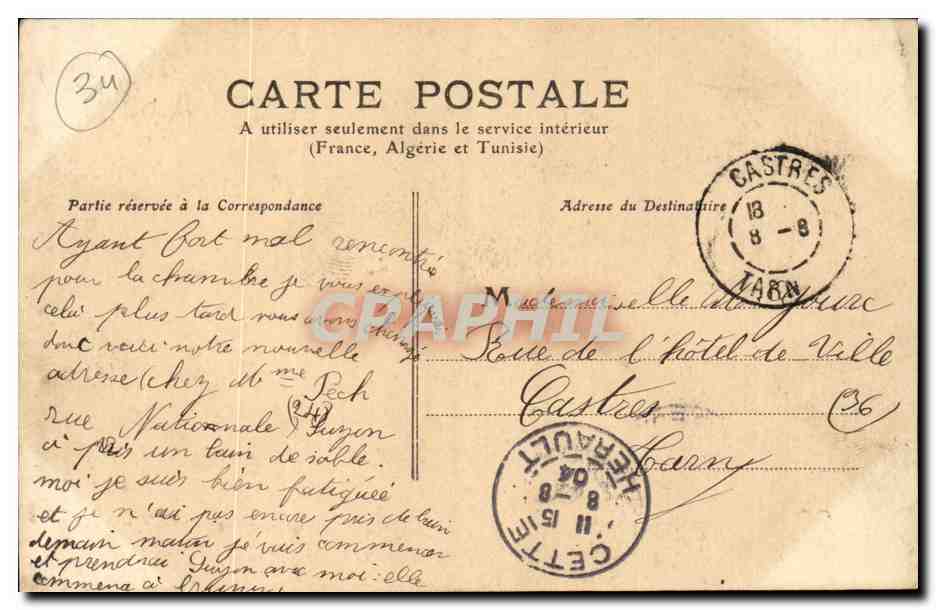 34
CARTE POSTALE
A utiliser seulement dans le service intérieur
(France, Algérie et Tunisie)
Partie réservée à la Correspondance
Adresse du Destinataire
CASTRES
18
8 -8
TARN
Ayant fort mal rencontré
pour la chambre je vous
celui plus tard nous avons changé
donc voici notre nouvelle
adresse (chez Mme Pech
rue Nationale (24)
a pris un bain de sable.
moi je suis bien fatiguée
et je n'ai pas encore pris de bain
demain matin je vais commencer
et prendrai avec moi: elle
commença à
Mademoiselle
Rue de l'hôtel de Ville
Castres (36
Tarn
CETTE
15 11
8 -8
04
HERAULT
CPAPHIL